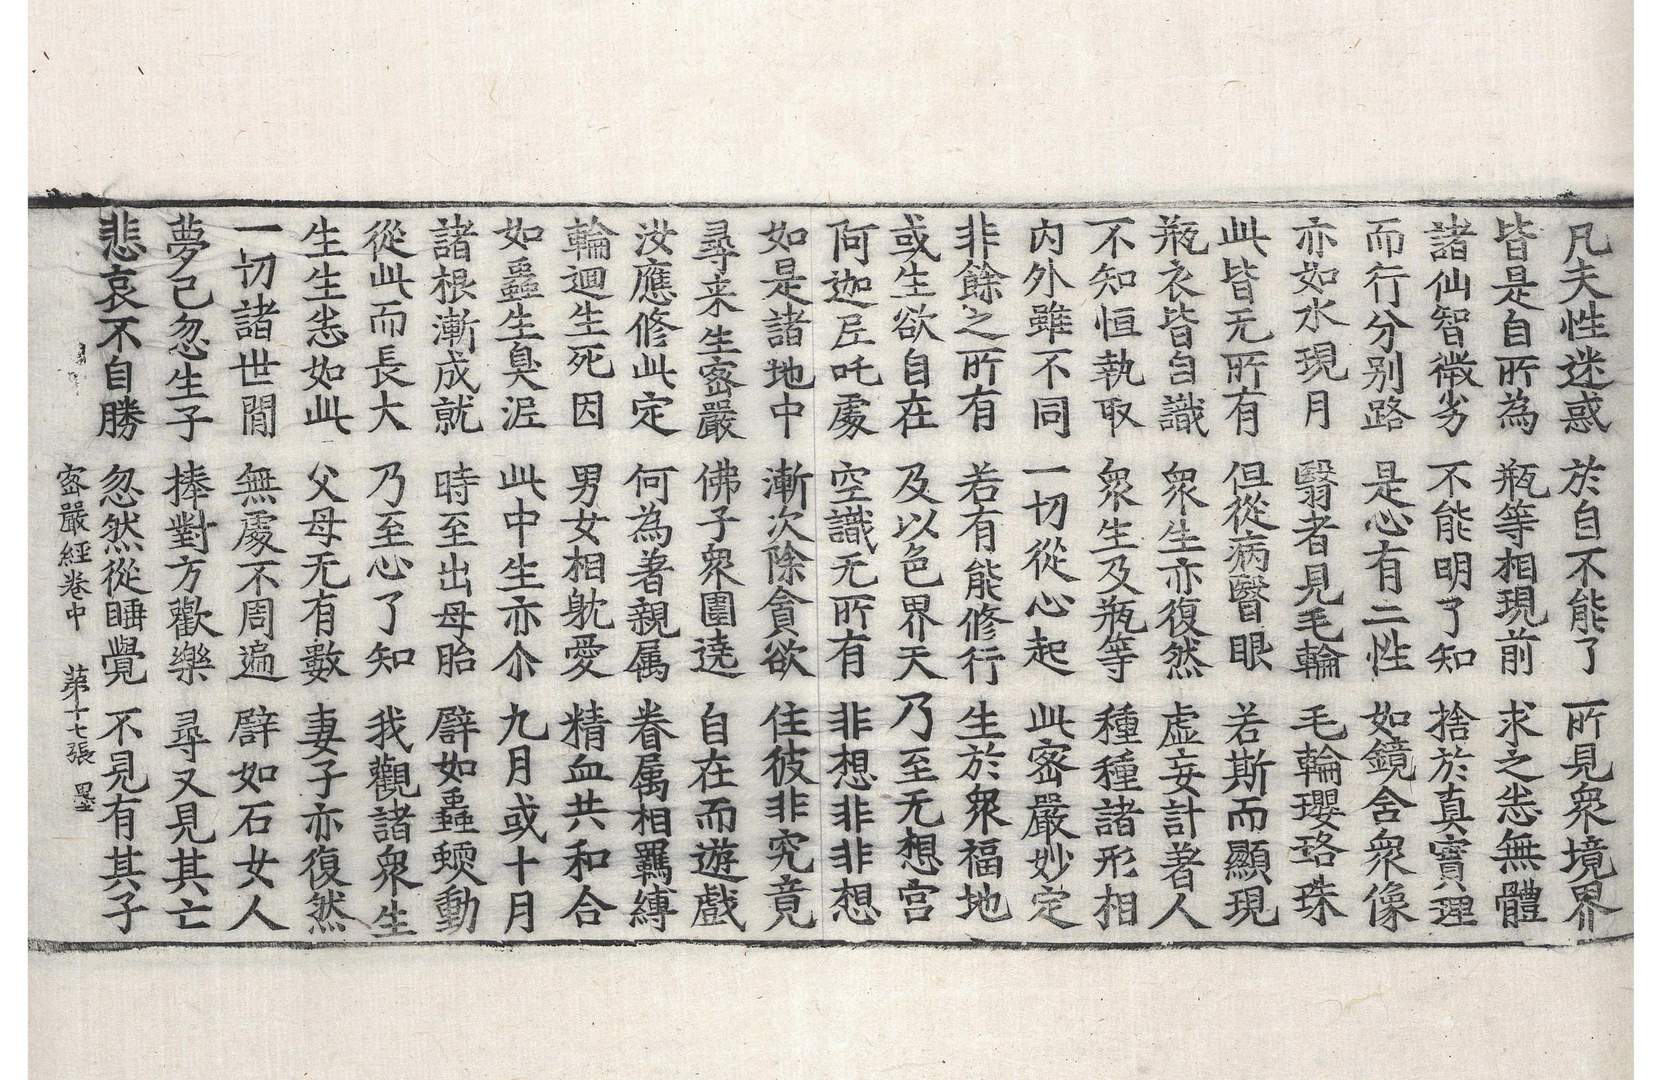 凡夫性迷惑 於自不能了 所見衆境界
皆是自所為 瓶等相現前 求之恙無體
諸仙智微劣 不能明了知 捨於真實理
而行分别路 是心有二性 如鏡含衆像
亦如水現月 翳者見毛輪 毛輪瓔珞珠
此皆无所有 但從病瞖眼 若斯而顯現
瓶衣皆自識 衆生亦復然 虚妄計著人
不知恒執取 衆生及瓶等 種種諸形相
内外雖不同 一切從心起 此密嚴妙定
非餘之所有 若有能修行 生於衆福地
或生欲自在 及以色界天 乃至无想宫
阿迦尼吒處 空識无所有 非想非非想
如是諸地中 漸次除貪欲 住彼非究竟
尋来生密嚴 佛子衆圍遶 自在而遊戲
汝應修此定 何為著親属 眷属相羈縛
輪迴生死因 男女相躭愛 精血共和合
如蟲生臭泥 此中生亦尒 九月或十月
諸根漸成就 時至出母胎 譬如蟲蝡動
從此而長大 乃至心了知 我觀諸衆生
生生恙如此 父母无有數 妻子亦復然
一切諸世間 無處不周遍 譬如石女人
夢已忽生子 捧對方歡樂 尋又見其亡
悲哀不自勝 忽然從睡覺 不見有其子
密嚴經卷中 苐十七張 墨